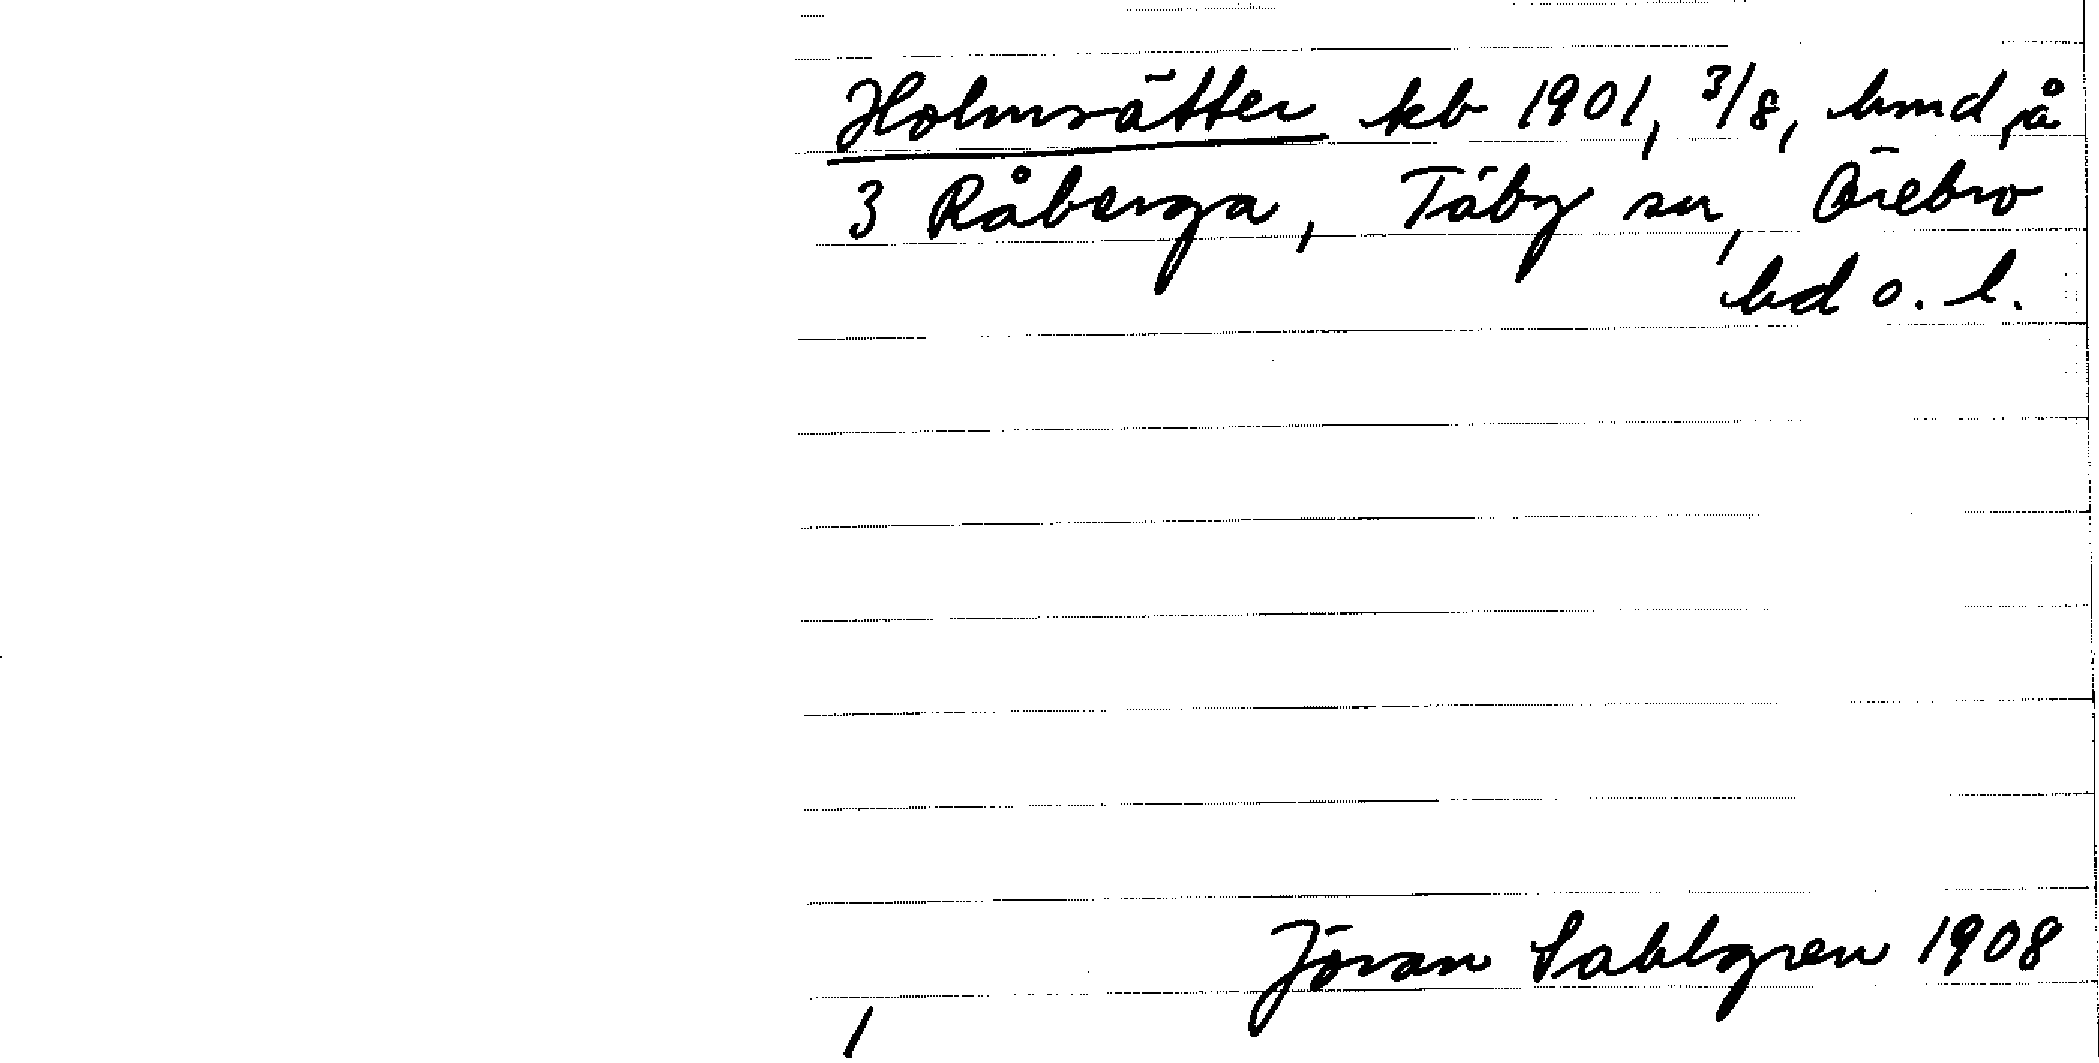 Holmsätter kb 1901, 3/8, hmd på
3 Råberga, Täby sn, Örebro
hd o. l.
Jöran Sahlgren 1908
1